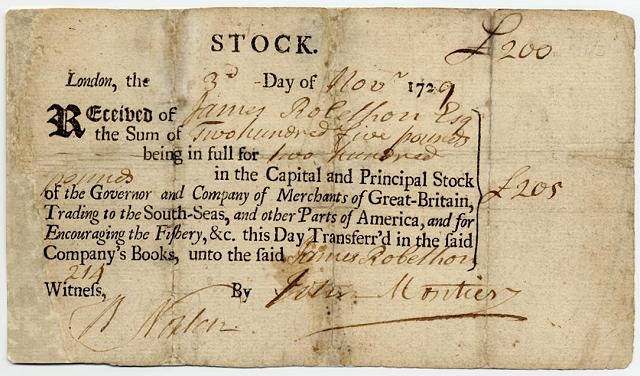 STOCK.
£200
London, the 3d - Day of Novr 1729
REceived of James Robethon Esq
the Sum of Two hundred five pounds
being in full for two hundred
pounds in the Capital and Principal Stock
of the Governor and Company of Merchants of Great-Britain,
£205
Trading to the South-Seas, and other Parts of America, and for
Encouraging the Fishery, &c. this Day Transferr'd in the said
Company's Books, unto the said James Robethon
Witness, By John